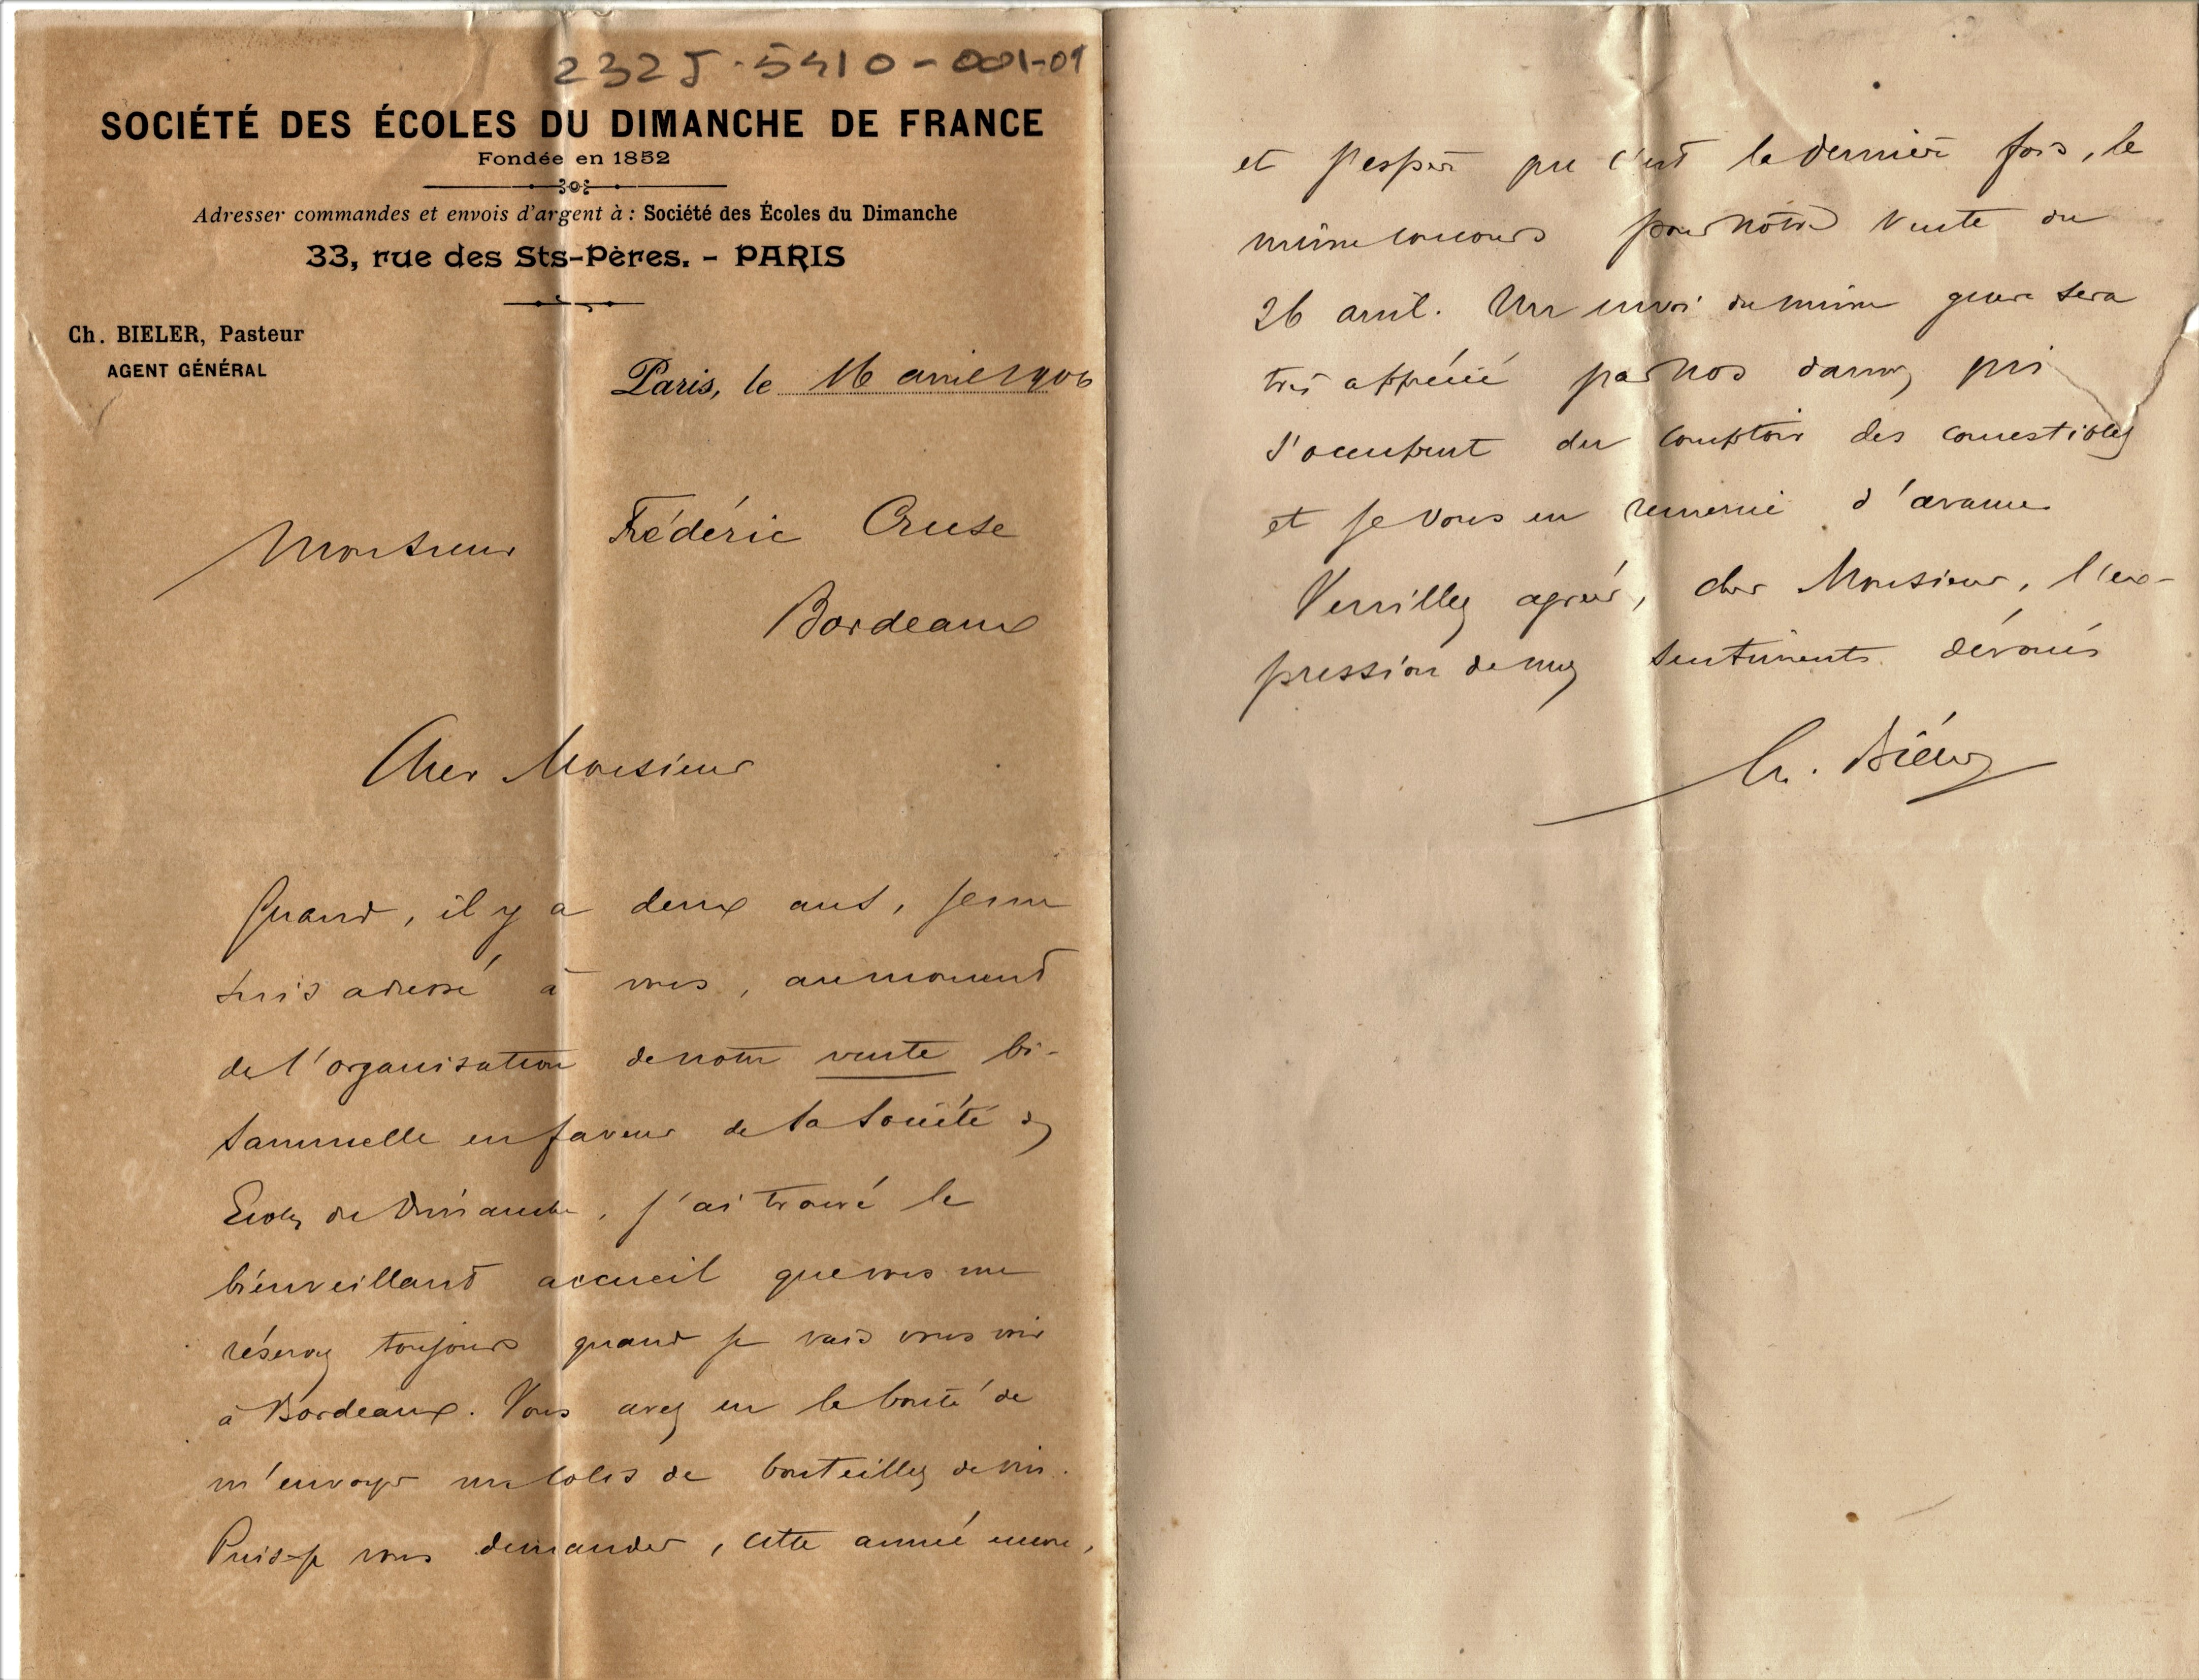 232J-5410-001-01
SOCIÉTÉ DES ÉCOLES DU DIMANCHE DE FRANCE
Fondée en 1852
Adresser commandes et envois d'argent à : Société des Écoles du Dimanche
33, rue des Sts-Pères. - PARIS
Ch. BIELER, Pasteur
AGENT GÉNÉRAL
Paris, le 16 avril 1906
Monsieur Frédéric Cruse
Bordeaux
Cher Monsieur
Quand, il y a deux ans, je me
suis adressé à vous, au moment
de l'organisation de notre vente bi-
sannuelle en faveur de la Société des
Ecoles du Dimanche, j'ai trouvé le
bienveillant accueil que vous me
réservez toujours quand je vais vous voir
à Bordeaux. Vous avez eu la bonté de
m'envoyer un colis de bouteilles de vin.
Puis-je vous demander, cette année encore,
et j'espère que c'est la dernière fois, le
même concours pour notre vente du
26 avril. Un envoi du même genre sera
très apprécié par nos dames qui
s'occupent du comptoir des comestibles
et je vous en remercie d'avance
Veuillez agréer, cher Monsieur, l'ex-
pression de mes sentiments dévoués
Ch. Bieler